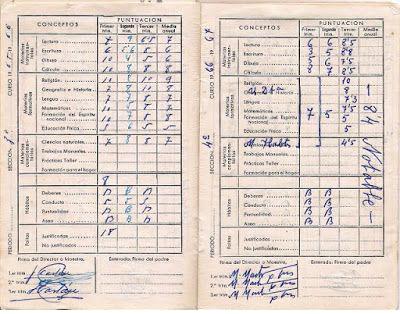 CONCEPTOS
PUNTUACIÓN
Primer trim.
Segundo trim.
Tercer trim.
Media anual
CURSO 19 65-19 66
SECCIÓN
PERIODO
Materias instrumentales
Lectura 7 9 6'5 7
Escritura 6 5'6 5 6
Dibujo 10 4 5 6
Cálculo 10 8 8 8
Materias formativas
Religión 10 8 10 9
Geografía e Historia 7 8 10 8
Lengua 7 5 5 7
Matemáticas 10 7 8 7
Formación del Espíritu nacional 10 7 5 8
Educación Física 5 6 5 5
Materias complementarias
Ciencias naturales 7 8 5 7
Trabajos Manuales
Prácticas Taller
Formación para el hogar
8
Hábitos
Deberes N B N
Conducta 5 5 5
Puntualidad N B N
Aseo N B N
Faltas
Justificadas 18
No justificadas
Firma del Director o Maestro,
Enterado: Firma del padre
1.er trim.
2.º trim.
3.er trim.
CONCEPTOS
PUNTUACIÓN
Primer trim.
Segundo trim.
Tercer trim.
Media anual
CURSO 19 66-19 67
SECCIÓN 4º
PERIODO
Materias instrumentales
Lectura 6 6 8'5
Escritura 3 5 8
Dibujo 5 6 7'5
Cálculo 8 7 8'5
Materias formativas
Religión 10
8
Lengua 7'3
Matemáticas 7 5 5
Formación del Espíritu nacional 5
Educación Física 5
Materias complementarias
4'5
Trabajos Manuales
Prácticas Taller
Formación para el hogar
— 8'4 Notable —
Hábitos
Deberes B B
Conducta B B
Puntualidad B B
Aseo B B
Faltas
Justificadas
No justificadas
Firma del Director o Maestro,
Enterado: Firma del padre
1.er trim.
2.º trim.
3.er trim.